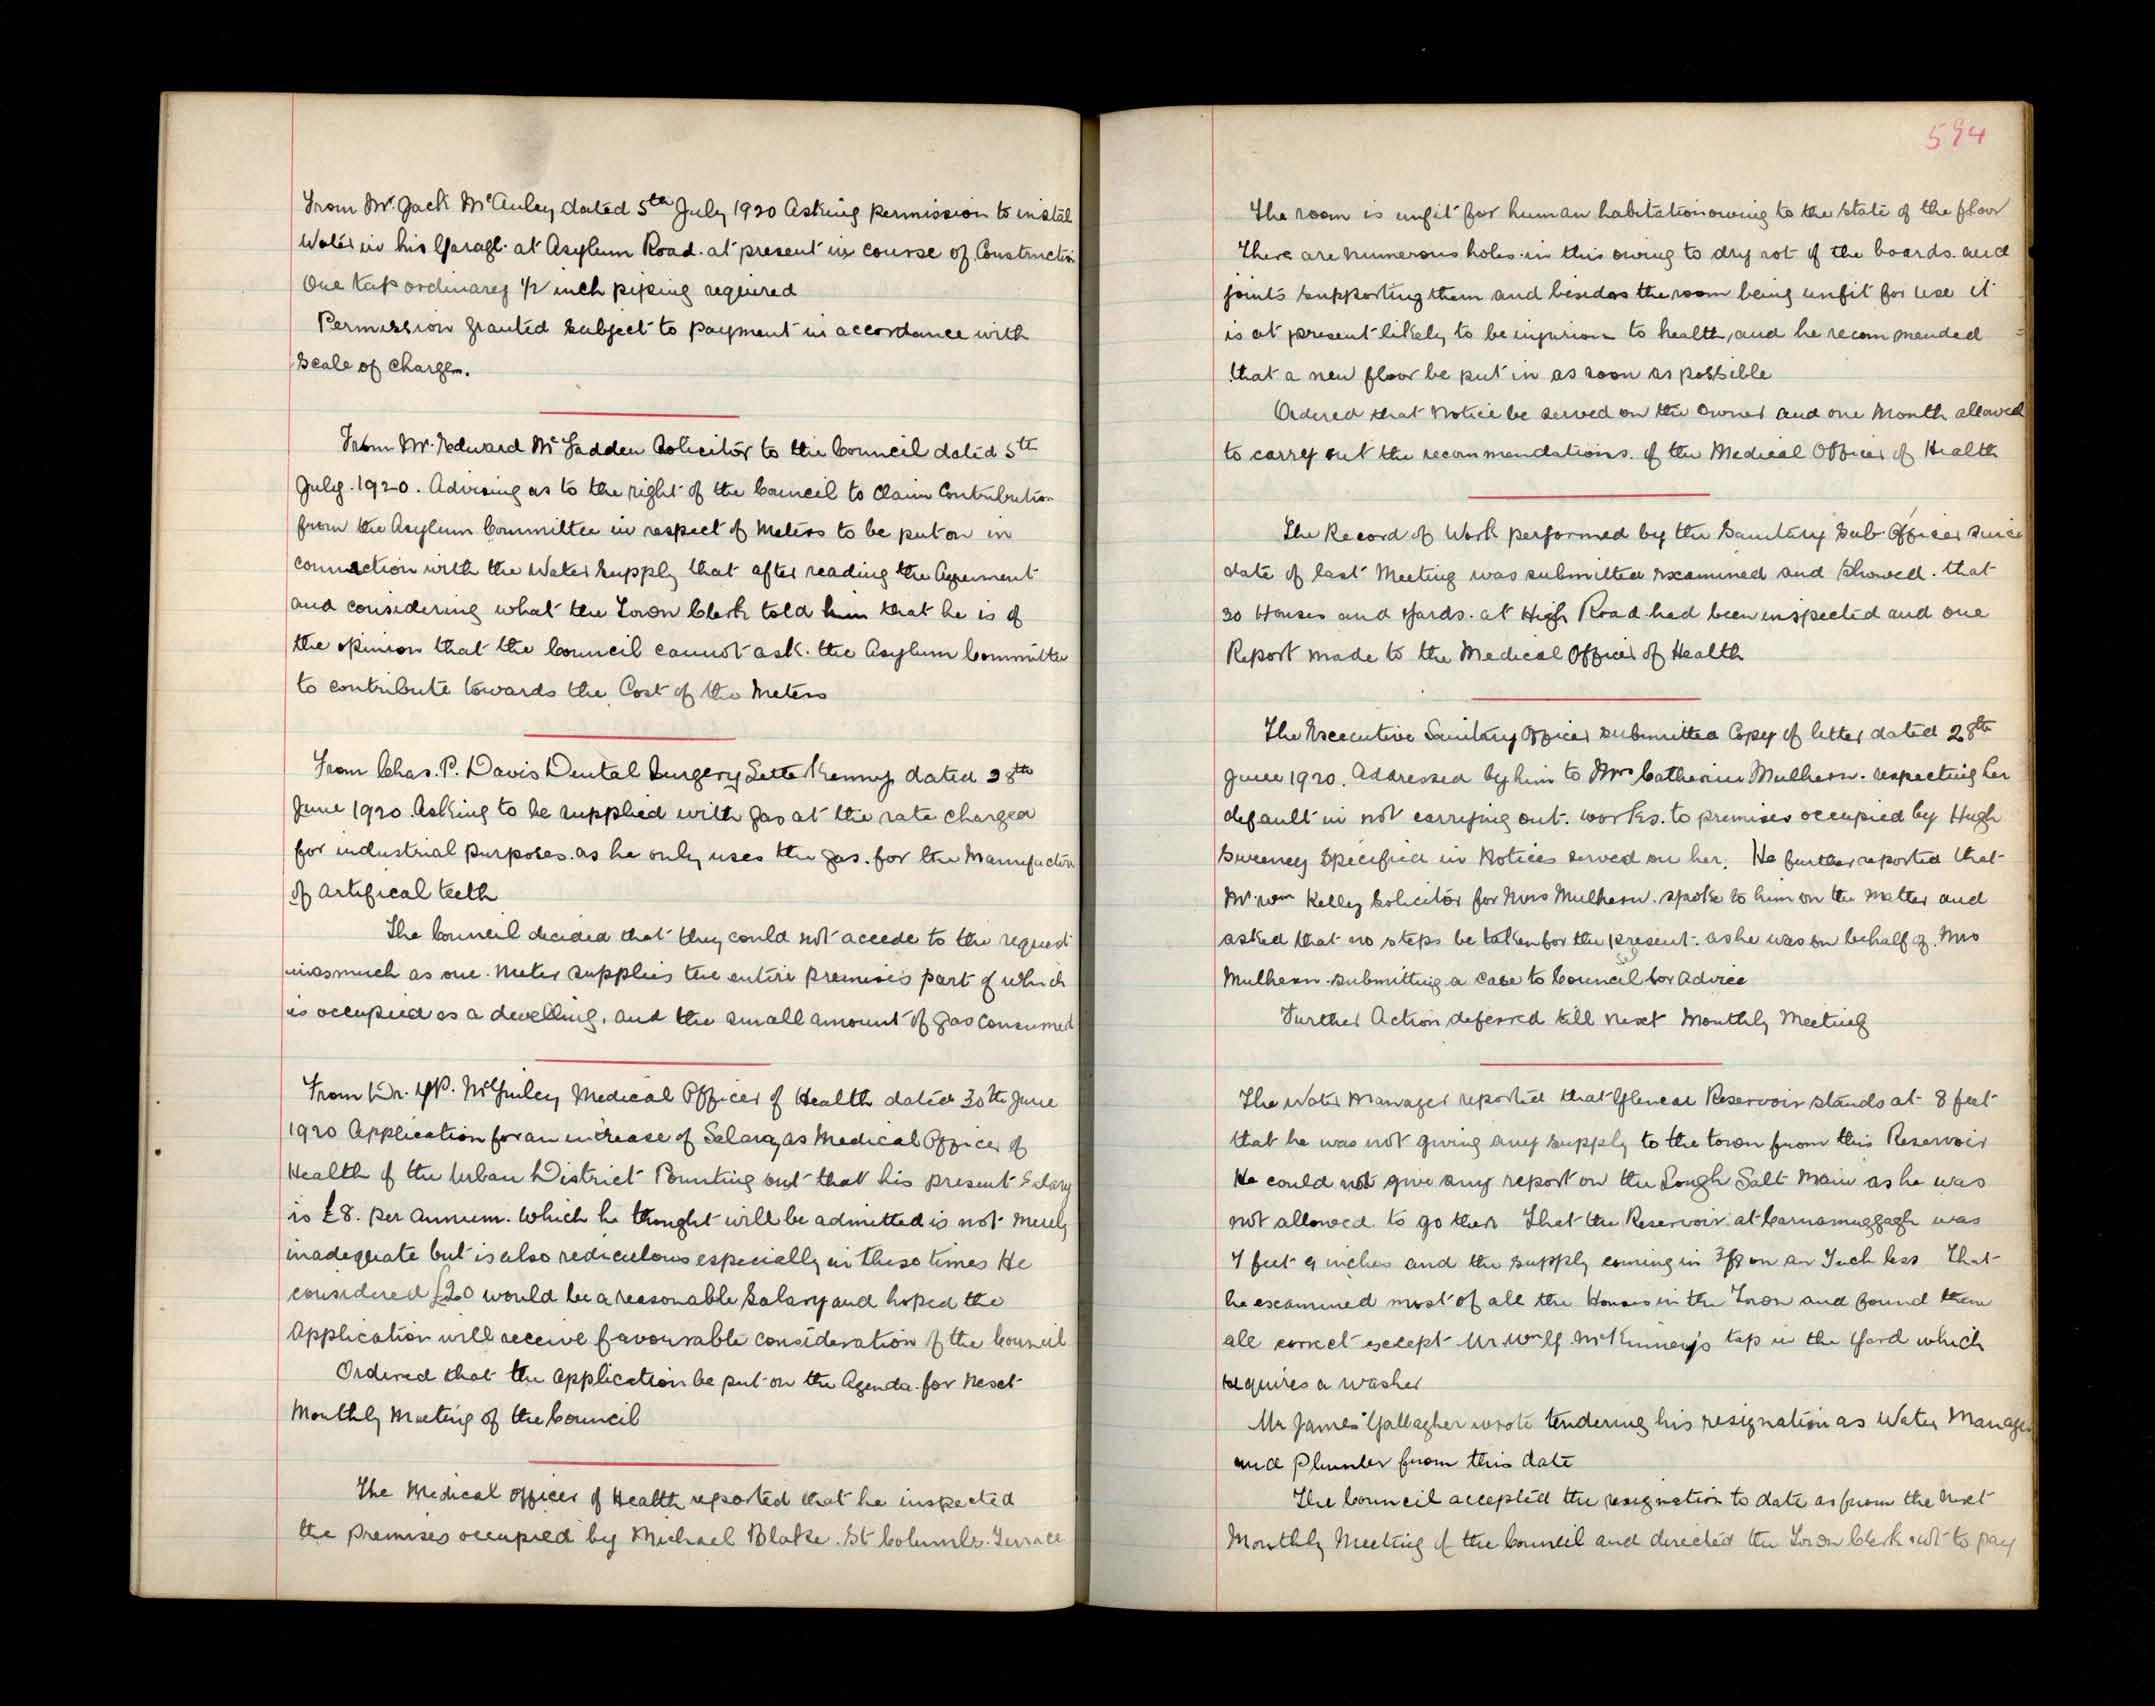 From Mr. Jack McAuley dated 5th July 1920 Asking permission to instal
Water in his Garage at Asylum Road. at present in course of Construction
One tap ordinarey 1/2 inch piping required
Permission granted subject to payment in accordance with
Scale of charges.
From Mr. Edward McFadden Solicitor to the Council dated 5th
July. 1920. Advising as to the right of the Council to Claim Contribution
from the Asylum Committee in respect of Meters to be put on in
connection with the Water supply that after reading the Agreement
and considering what the Town Clerk told him that he is of
the opinion that the Council cannot ask. the Asylum Committee
to contribute towards the Cost of the Meters
From Chas. P. Davis Dental Surgery Letterkenny dated 28th
June 1920. Asking to be supplied with gas at the rate charged
for industrial purposes. as he only uses the gas. for the Manufacture
of artifical teeth
The Council decided that they could not accede to the request
inasmuch as one. Meter supplies the entire premises part of which
is occupied as a dwelling. and the small amount of gas consumed
From Dr. J.P. McGinley Medical Officer of Health dated 30th June
1920 Application for an increase of Salary as Medical Officer of
Health of the Urban District Pointing out that his present Salary
is £8. per annum. Which he thought will be admitted is not merely
inadequate but is also rediculous especially in these times He
considered £20 would be a reasonable Salary and hoped the
Application will receive favourable consideration of the Council
Ordered that the application be put on the Agenda for Next
Monthly Meeting of the Council
The Medical Officer of Health reported that he inspected
the premises occupied by Michael Blake. St Columbs. Terrace
594
The room is unfit for human habitation owing to the state of the floor
There are numerous holes in this owing to dry rot of the boards. and
joints supporting them and besides the room being unfit for use it
is at present likely to be injurious to health, and he recommended
that a new floor be put in as soon as possible
Ordered that Notice be served on the Owner and one Month allowed
to carry out the recommendations. of the Medical Officer of Health
The Record of Work performed by the Sanitary Sub. Officer since
date of last Meeting was submitted examined and showed. that
30 Houses and Yards. at High Road had been inspected and one
Report made to the Medical Officer of Health
The Executive Sanitary Officer submitted Copy of letter dated 28th
June 1920. Addressed by him to Mrs Catherine Mulhern. respecting her
default in not carrying out. works. to premises occupied by Hugh
Sweeney Specified in Notices served on her. He further reported that
Mr. Wm Kelly Solicitor for Mrs Mulhern. spoke to him on the Matter and
asked that no steps be taken for the present. as he was on behalf of. Mrs
Mulhern. submitting a case to Council for advice
Further Action deferred till Next Monthly Meeting
The Water Manager reported that Glencar Reservoir stands at 8 feet
that he was not giving any supply to the town from this Reservoir
He could not give any report on the Lough Salt Main as he was
not allowed to go there That the Reservoir at Carnamuggagh was
7 feet 9 inches and the supply coming in 3/8 on an Inch less That
he examined most of all the Houses in the Town and found them
all correct except Mr. Wm G. McKinney's tap in the Yard which
requires a washer
Mr James Gallagher wrote tendering his resignation as Water Manager
and Plumber from this date
The Council accepted the resignation to date as from the Next
Monthly Meeting of the Council and directed the Town Clerk not to pay